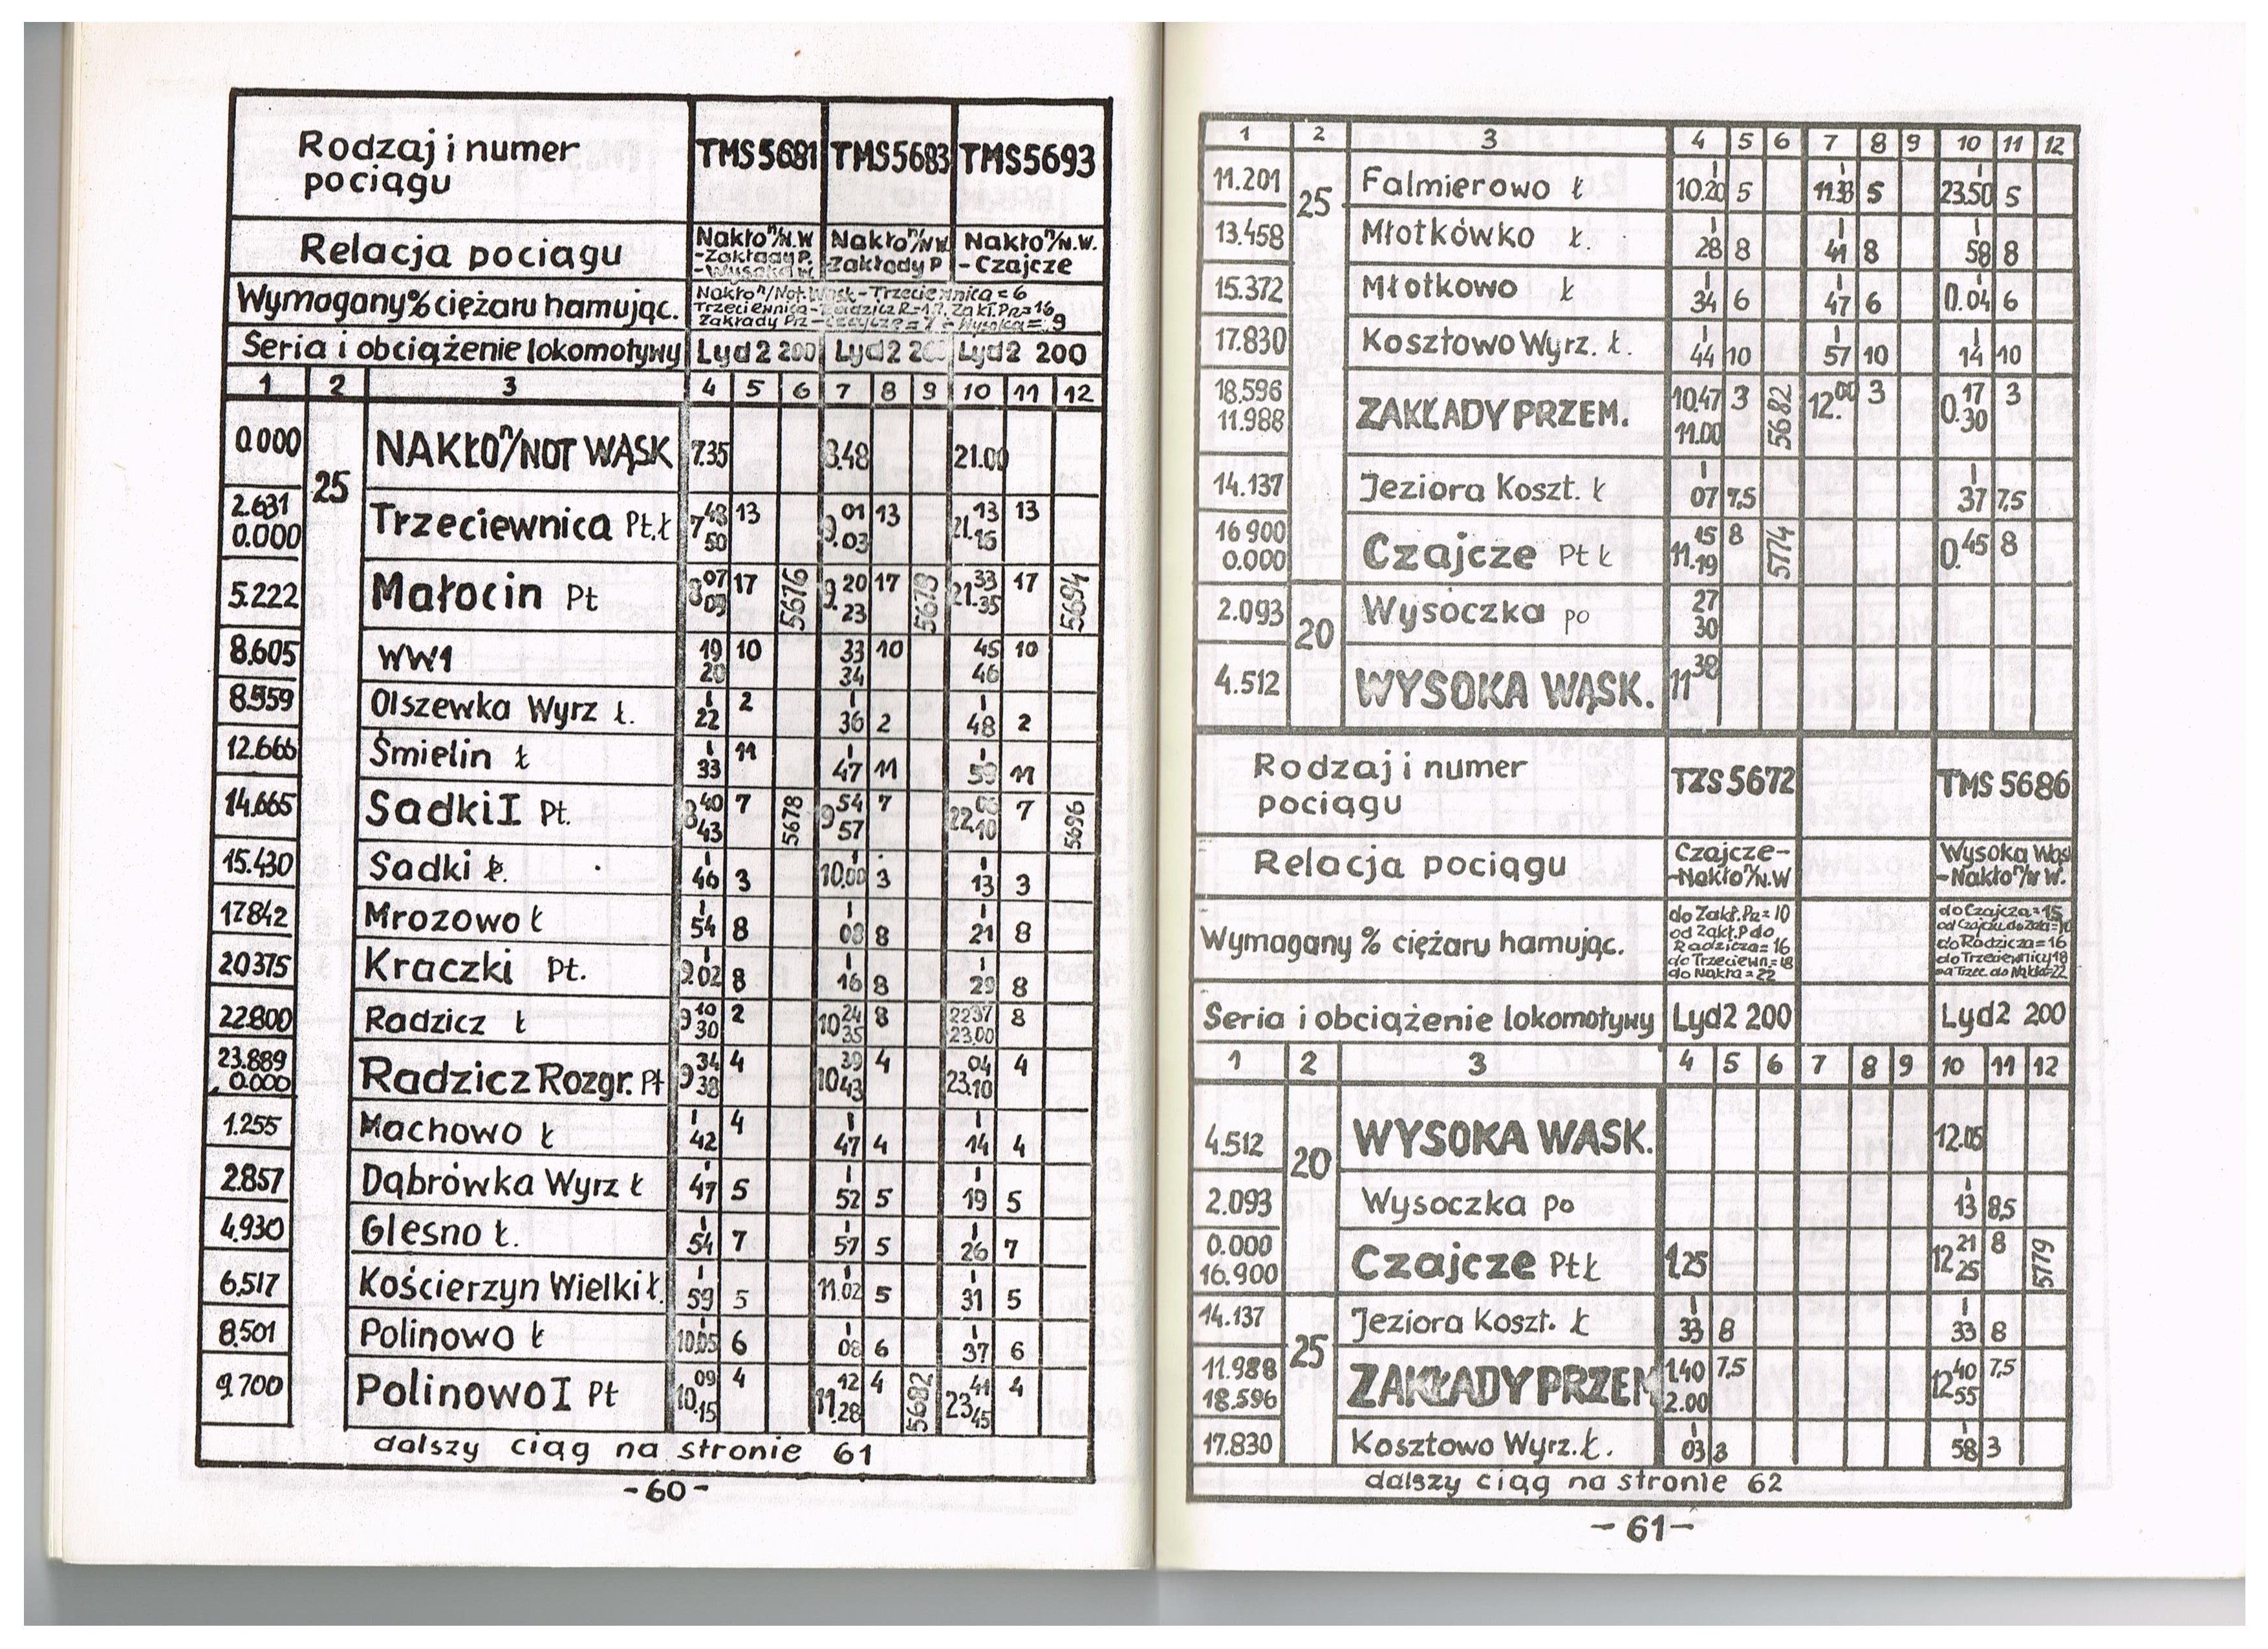 Rodzaj i numer pociągu TMS 5681 TMS 5683 TMS 5693
Relacja pociągu Nakło n/N.W -Zakłady P. -Wysoka W. Nakło n/N.W -Zakłady P Nakło n/N.W. -Czajcze
Wymagany % ciężaru hamując. Nakło n/Not Wąsk - Trzeciewnica = 6
Trzeciewnica - Zakł. Prz = 16
Zakłady Prz - Wysoka = 9
Seria i obciążenie lokomotywy Lyd2 200 Lyd2 Lyd2 200
1 2 3 4 5 6 7 8 9 10 11 12
0.000 25 NAKŁO n/NOT WĄSK 7.35 8.48 21.00
2.631 0.000 Trzeciewnica Pt.ł 7 48 50 13 9 01 03 13 21 13 15 13
5.222 Małocin Pt 8 07 09 17 5676 9 20 23 17 5678 21 33 35 17 5694
8.605 WW1 19 20 10 33 34 10 45 46 10
8.959 Olszewka Wyrz ł. 22 2 36 2 48 2
12.666 Śmielin ł 33 11 47 11 59 11
14.665 Sadki I Pt. 8 40 43 7 5678 9 54 57 7 22 06 10 7 5696
15.430 Sadki ł. 46 3 10.00 3 13 3
17.842 Mrozowo ł 54 8 08 8 21 8
20375 Kraczki Pt. 9.02 8 16 8 29 8
22.800 Radzicz ł 9 10 30 2 10 24 35 8 2237 23.00 8
23.889 0.000 Radzicz Rozgr. Pt 9 34 38 4 10 39 43 4 23 04 10 4
1.255 Machowo ł 42 4 47 4 14 4
2.857 Dąbrówka Wyrz ł 47 5 52 5 19 5
4.930 Glesno ł. 54 7 57 5 26 7
6.517 Kościerzyn Wielki ł. 59 5 11.02 5 31 5
8.501 Polinowo ł 10.05 6 08 6 37 6
9.700 Polinowo I Pt 10 09 15 4 11 12 28 4 5682 23 41 45 4
dalszy ciąg na stronie 61
-60-
1 2 3 4 5 6 7 8 9 10 11 12
11.201 25 Falmierowo ł 10.20 5 11.33 5 23.50 5
13.458 Młotkówko ł. 28 8 41 8 58 8
15.372 Młotkowo ł 34 6 47 6 0.04 6
17.830 Kosztowo Wyrz. ł. 44 10 57 10 14 10
18.596 11.988 ZAKŁADY PRZEM. 10.47 11.00 3 5682 12.00 3 0 17 30 3
14.137 Jeziora Koszt. ł 07 7,5 37 7,5
16 900 0.000 Czajcze Pt ł 11 15 19 8 5774 0.45 8
2.093 20 Wysoczka po 27 30
4.512 WYSOKA WĄSK. 11 38
Rodzaj i numer pociągu TZS 5672 TMS 5686
Relacja pociągu Czajcze- -Nakło n/N.W Wysoka Wąs -Nakło n/N W.
Wymagany % ciężaru hamując. do Zakł. Prz = 10 od Zakł. P do Radzicza = 16 do Trzeciewn = 18 do Nakła = 22 do Czajcza = 15 do Radzicza = 16 do Trzeciewnicy 18 od Trzec. do Nakła = 22
Seria i obciążenie lokomotywy Lyd2 200 Lyd2 200
1 2 3 4 5 6 7 8 9 10 11 12
4.512 20 WYSOKA WASK. 12.05
2.093 Wysoczka po 13 8,5
0.000 16.900 Czajcze Pt ł 1.25 12 21 25 8 5779
14.137 25 Jeziora Koszt. ł 33 8 33 8
11.988 18.596 ZAKŁADY PRZEM 1.40 2.00 7,5 12 40 55 7,5
17.830 Kosztowo Wyrz. ł. 03 3 58 3
dalszy ciąg na stronie 62
-61-